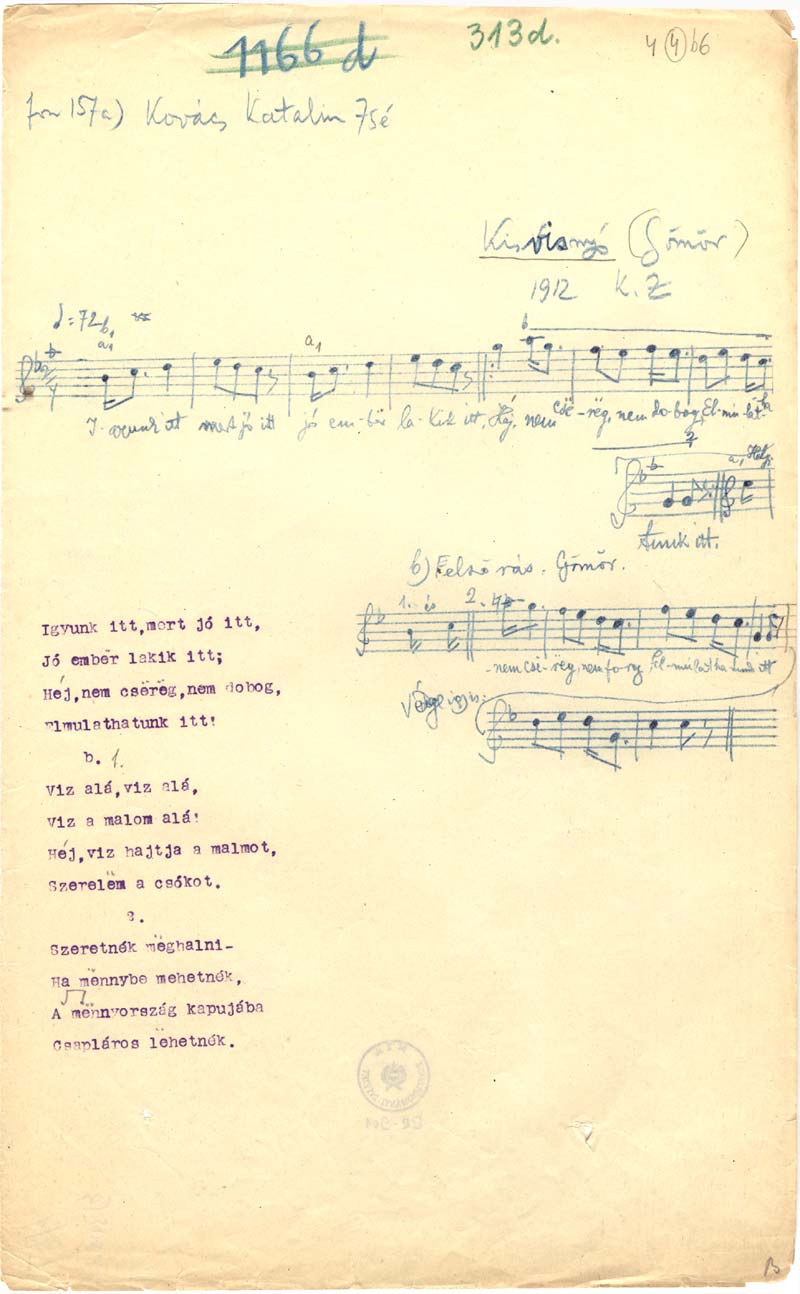 1166 d
313d.
4 4 66
fon 157a) Kovács Katalin 73é
Kisvisnyó (Gömör)
1912 K. Z
= 72
b1
a1
a1
I-gyunk itt mert jó itt jó em-bër la-kik itt, Héj, nem csë-rëg, nem do-bog, El-mu-lat-ha
2
a1
tunk itt.
b) Felső rás. Gömör.
1. és 2.
-nem csë-rëg, nem fo-rg, El-mulat-ha-tunk itt
Végig is:
Igyunk itt,mert jó itt,
Jó embër lakik itt;
Héj,nem csërëg,nem dobog,
Elmulathatunk itt!
b. 1.
Viz alá,viz alá,
Viz a malom alá!
Héj,viz hajtja a malmot,
Szerelëm a csókot.
2.
Szeretnék mëghalni-
Ha mënnybe mehetnék,
A mënnyország kapujába
Csapláros lëhetnék.
B